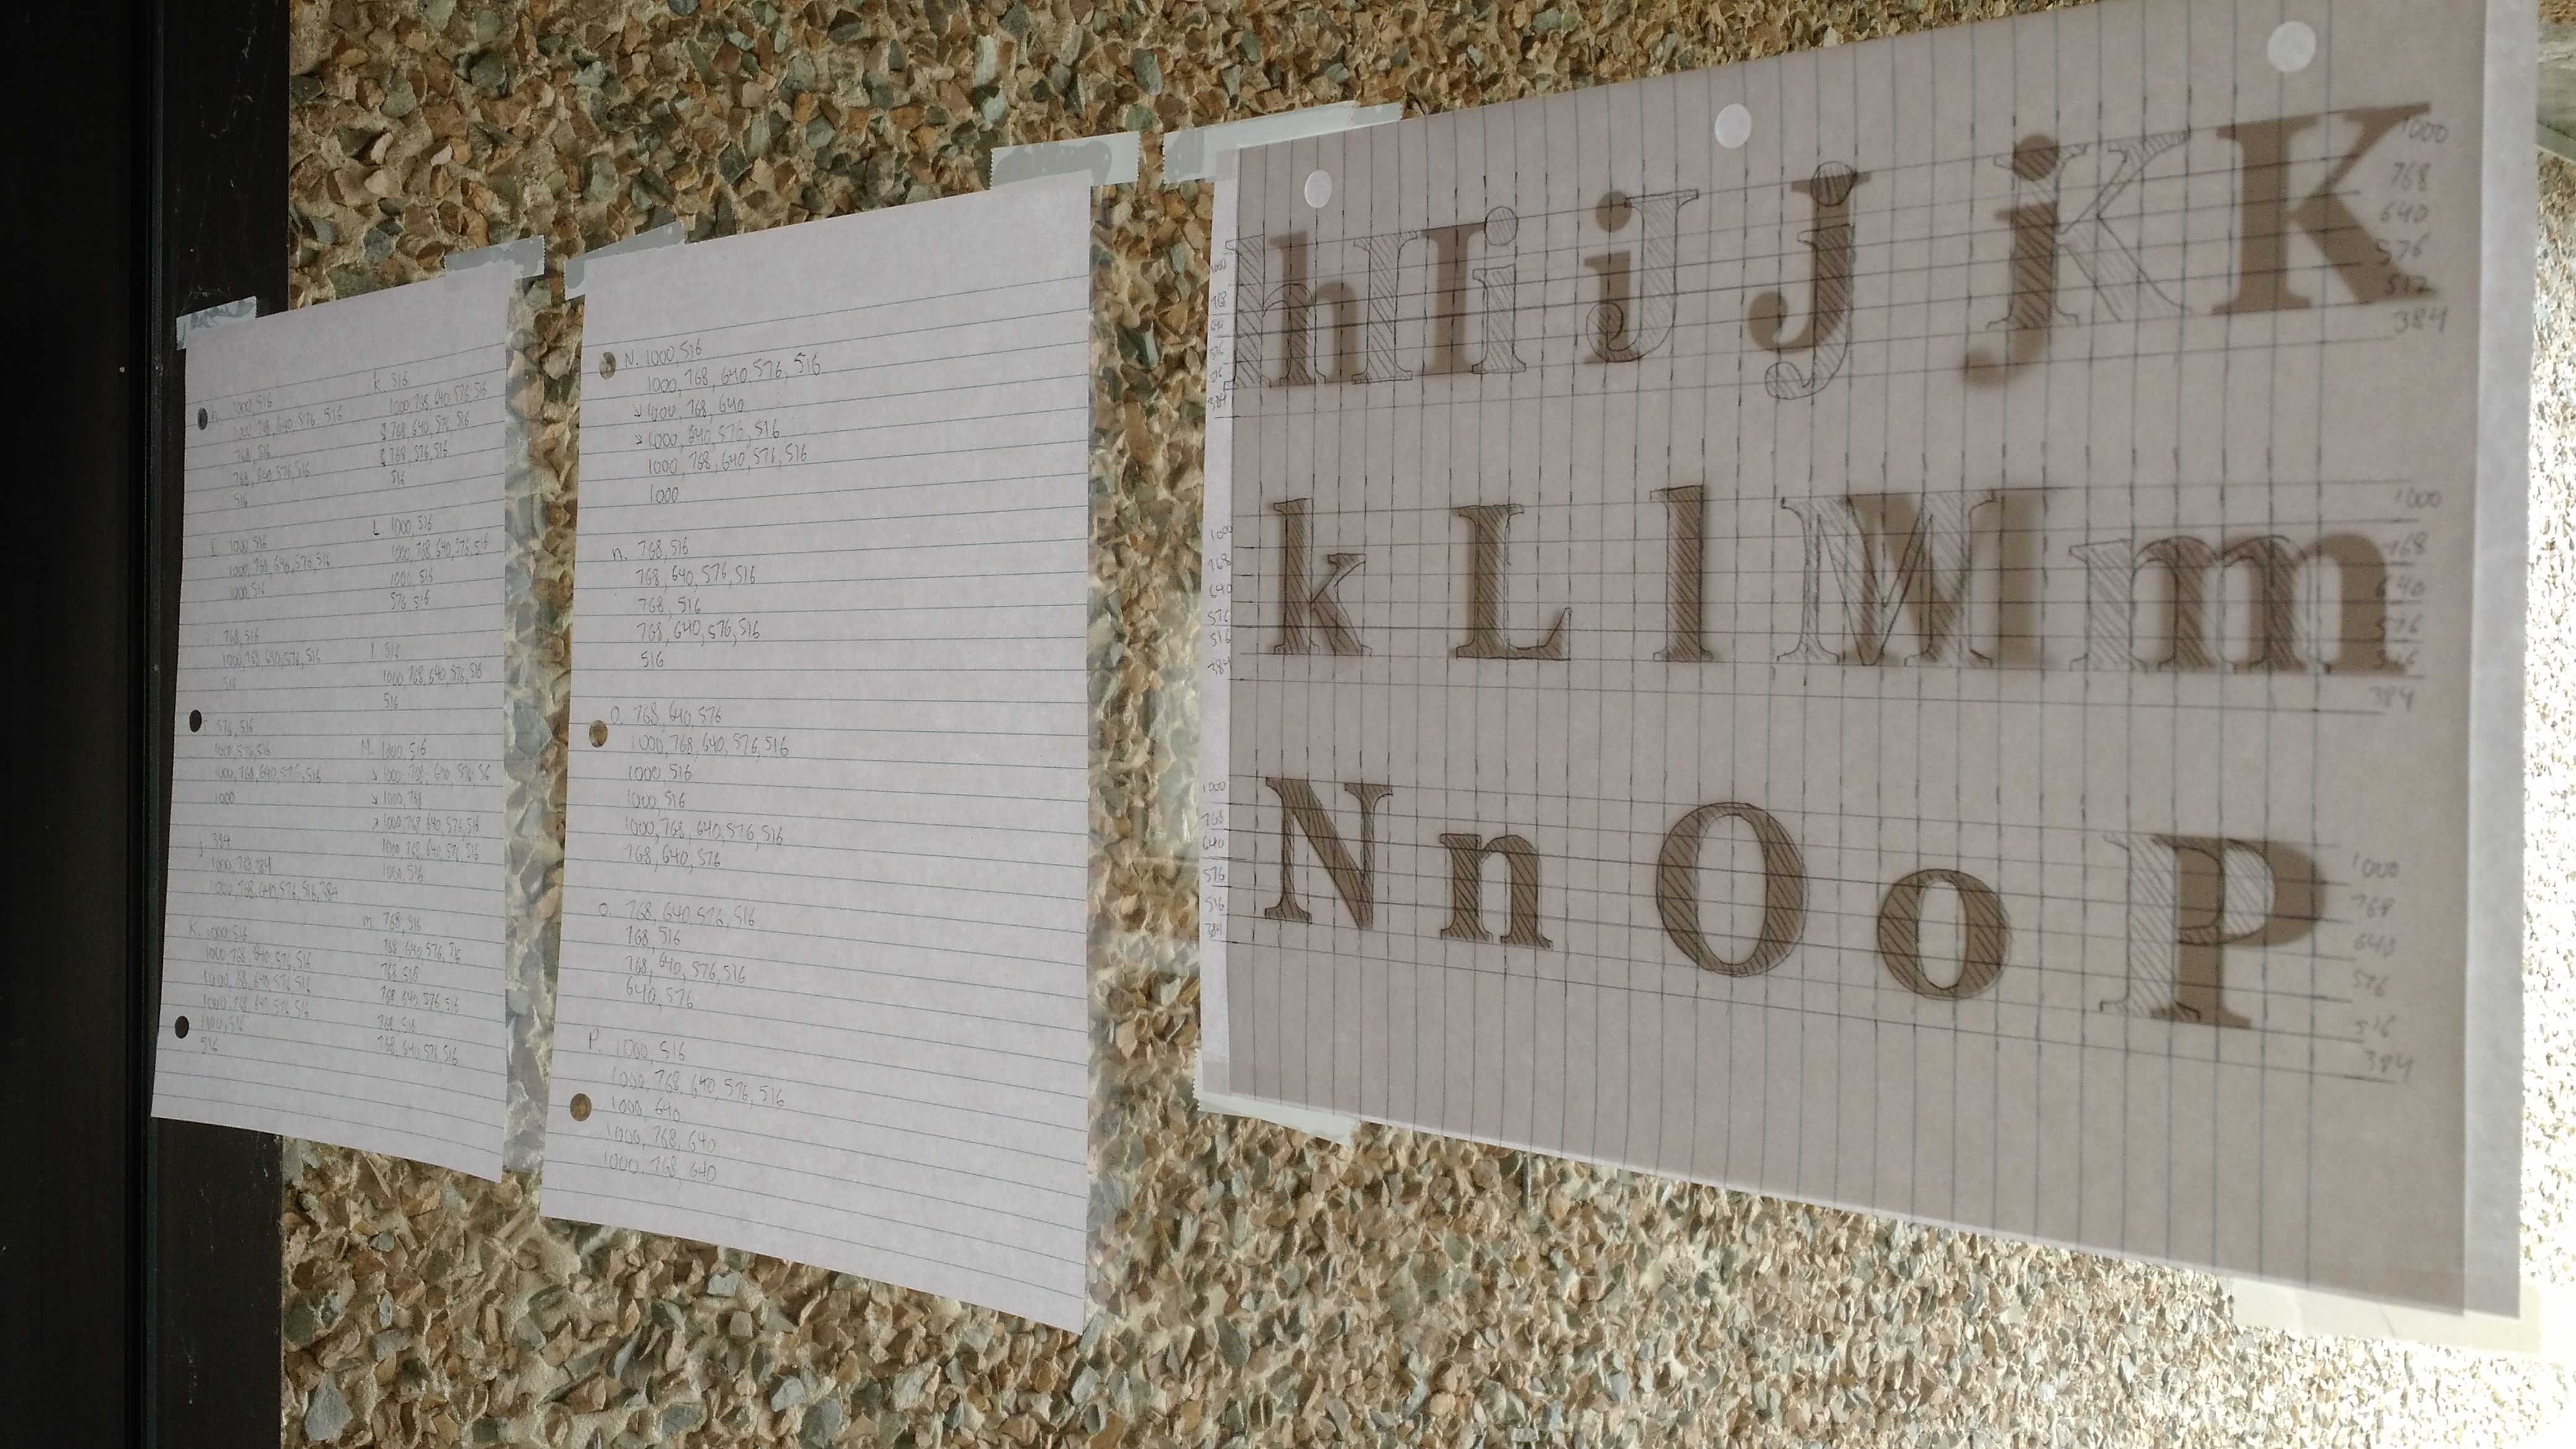 h. 1000, 516
1000, 768, 640, 576, 516
768, 516
768, 640, 576, 516
516
I 1000, 516
1000, 768, 640, 576, 516
1000, 516
768, 516
1000, 768, 640, 576, 516
516
576, 516
1000, 576, 516
1000, 768, 640, 576, 516
1000
j 384
1000, 768, 384
1000, 768, 640, 576, 516, 384
K. 1000, 516
1000, 768, 640, 576, 516
1000, 768, 640, 576, 516
1000, 768, 640, 576, 516
1000, 516
516
k. 516
1000, 768, 640, 576, 516
768, 640, 576, 516
768, 576, 516
516
L 1000, 516
1000, 768, 640, 576, 516
1000, 516
576, 516
l 516
1000, 768, 640, 576, 516
516
M. 1000, 516
↘ 1000, 768, 640, 576, 516
↘ 1000, 768
↗ 1000, 768, 640, 576, 516
1000, 768, 640, 576, 516
1000, 516
m. 768, 516
768, 640, 576, 516
768, 516
768, 640, 576, 516
768, 516
768, 640, 576, 516
N. 1000, 516
1000, 768, 640, 576, 516
↘ 1000, 768, 640
↘ 1000, 640, 576, 516
1000, 768, 640, 576, 516
1000
n. 768, 516
768, 640, 576, 516
768, 516
768, 640, 576, 516
516
O. 768, 640, 576
1000, 768, 640, 576, 516
1000, 516
1000, 516
1000, 768, 640, 576, 516
768, 640, 576
o. 768, 640, 576, 516
768, 516
768, 640, 576, 516
640, 576
P. 1000, 516
1000, 768, 640, 576, 516
1000, 640
1000, 768, 640
1000, 768, 640
h I I i i J J j j K K
1000
768
640
576
512
384
1000
768
640
576
516
384
k L l M m
1000
768
640
576
516
384
1000
768
640
576
516
384
N n O o P
1000
768
640
576
516
384
1000
768
640
576
516
384